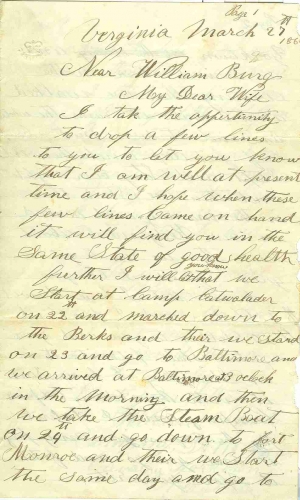 Page 1
Virginia March 27th
186
Near William Burg
My Dear Wife
I take the opportunity
to drop a few lines
to you to let you know
that I am well at present
time and I hope when these
few lines Came on hand
it will find you in the
Same State of good health
further I will let you know that we
Start at Camp Calwalader
on 22th and marched down to
the Berks and their we stard
on 23 and go to Baltimore and
we arrived at Baltimore at 3 oclock
in the Morning and then
we take the Steam Boat
on 24th and go down to fort
Monroe and their we Start
the Same day and go to